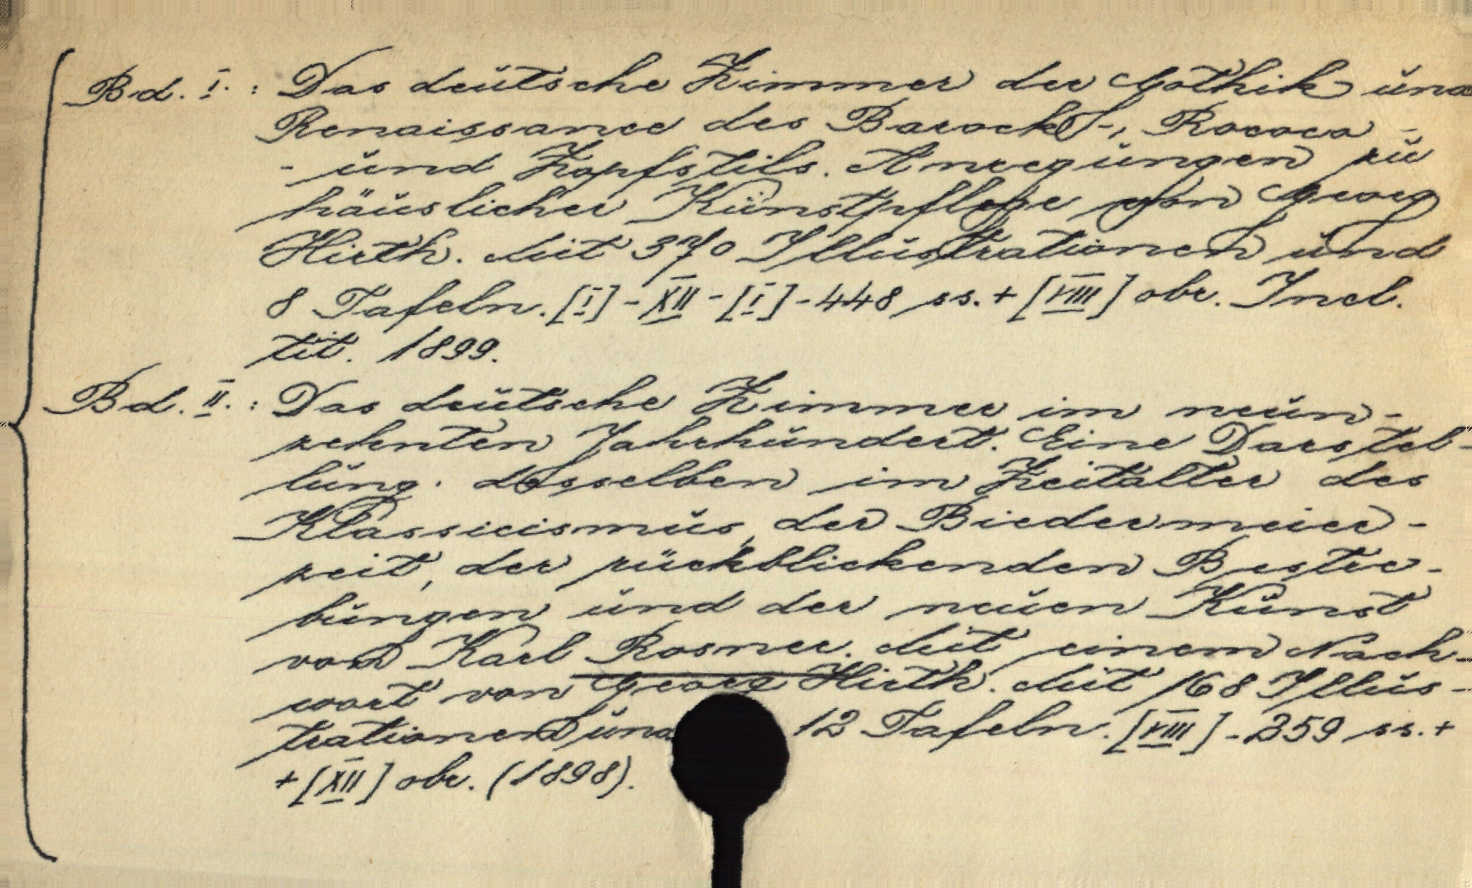 Bd. I. : Das deutsche Zimmer der Gothik und
Renaissance des Barock-, Rococo -
- und Zopfstils. Anregungen zu
häuslicher Kunstpflege von Georg
Hirth. Mit 370 Illustrationen und
8 Tafeln. [I] - XII - [I] - 448 ss. + [VIII] obr. Incl.
tit. 1899.
Bd. II. : Das deutsche Zimmer im neun-
zehnten Jahrhundert. Eine Darstel-
lung. desselben im Zeitalter des
Klassicismus, der Biedermeier-
zeit, der rückblickenden Bestre-
bungen und der neuen Kunst
von Karl Rosner. Mit einem Nach-
wort von Georg Hirth. Mit 168 Illus-
trationen und 12 Tafeln. [VIII] - 259 ss. +
+ [XII] obr. (1898).